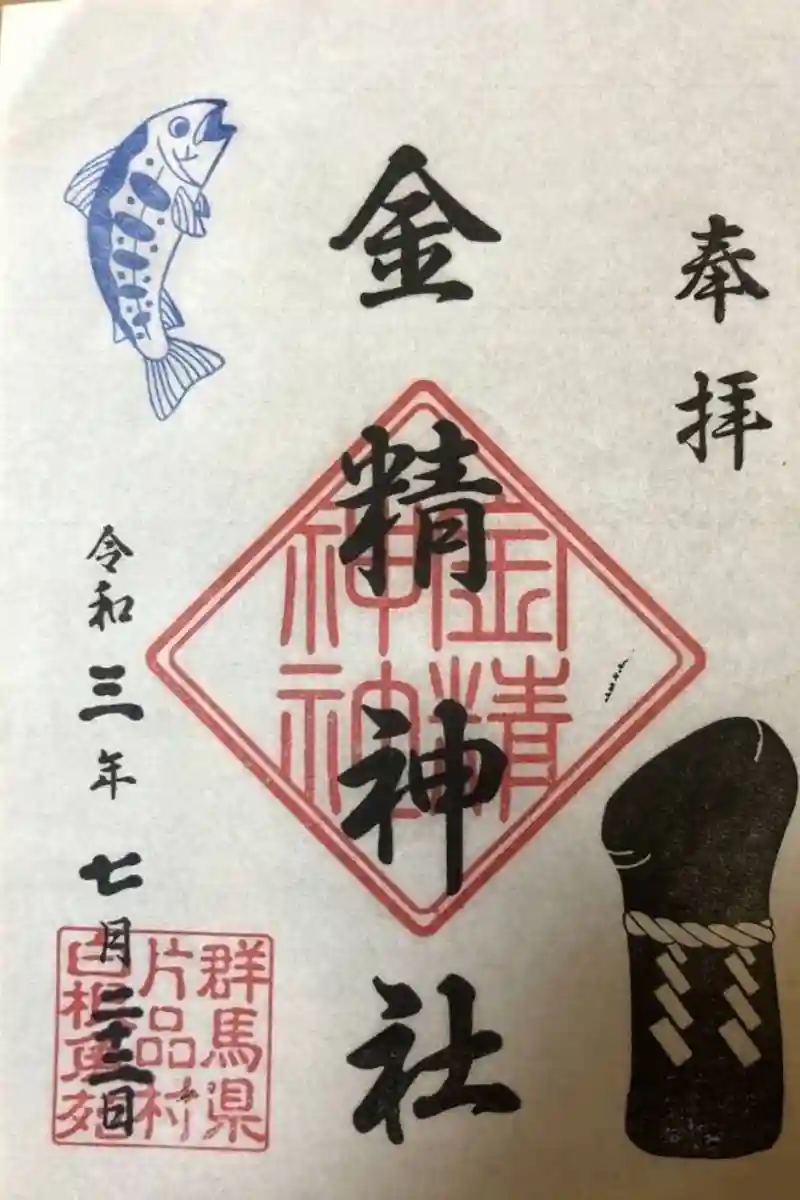 奉拝
金精神社
金精
神社
令和三年七月二十二日
群馬県
片品村
白根魚苑